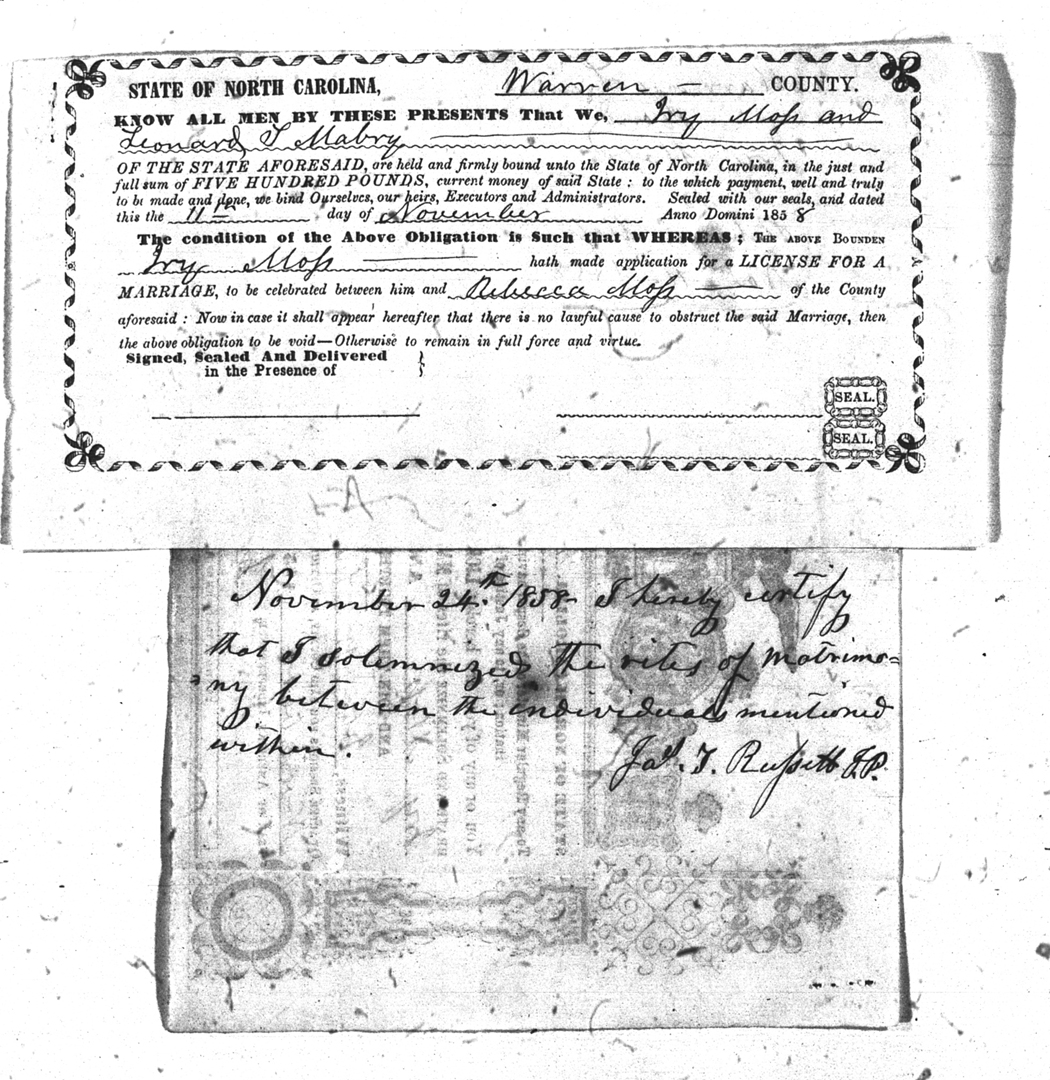 STATE OF NORTH CAROLINA, Warren COUNTY.
KNOW ALL MEN BY THESE PRESENTS That We, Ivy Moss and
Leonard T Mabry
OF THE STATE AFORESAID, are held and firmly bound unto the State of North Carolina, in the just and
full sum of FIVE HUNDRED POUNDS, current money of said State : to the which payment, well and truly
to be made and done, we bind Ourselves, our heirs, Executors and Administrators. Sealed with our seals, and dated
this the 11th day of November Anno Domini 1858
The condition of the Above Obligation is Such that WHEREAS ; THE ABOVE BOUNDEN
Ivy Moss hath made application for a LICENSE FOR A
MARRIAGE, to be celebrated between him and Rebecca Moss of the County
aforesaid : Now in case it shall appear hereafter that there is no lawful cause to obstruct the said Marriage, then
the above obligation to be void—Otherwise to remain in full force and virtue.
Signed, Sealed And Delivered
in the Presence of
SEAL.
SEAL.
November 24th. 1858 I hereby certify
that I solemnized the rites of matrimo=
ny between the individuals mentioned
within.
Jas. T. Russell J.P.